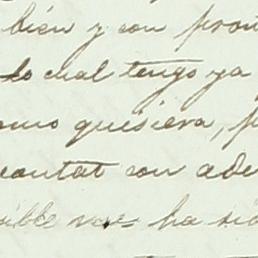 bien y con pron
lo cual tengo ya
omo quisiera, p
cantat con ade
sible nos ha sid